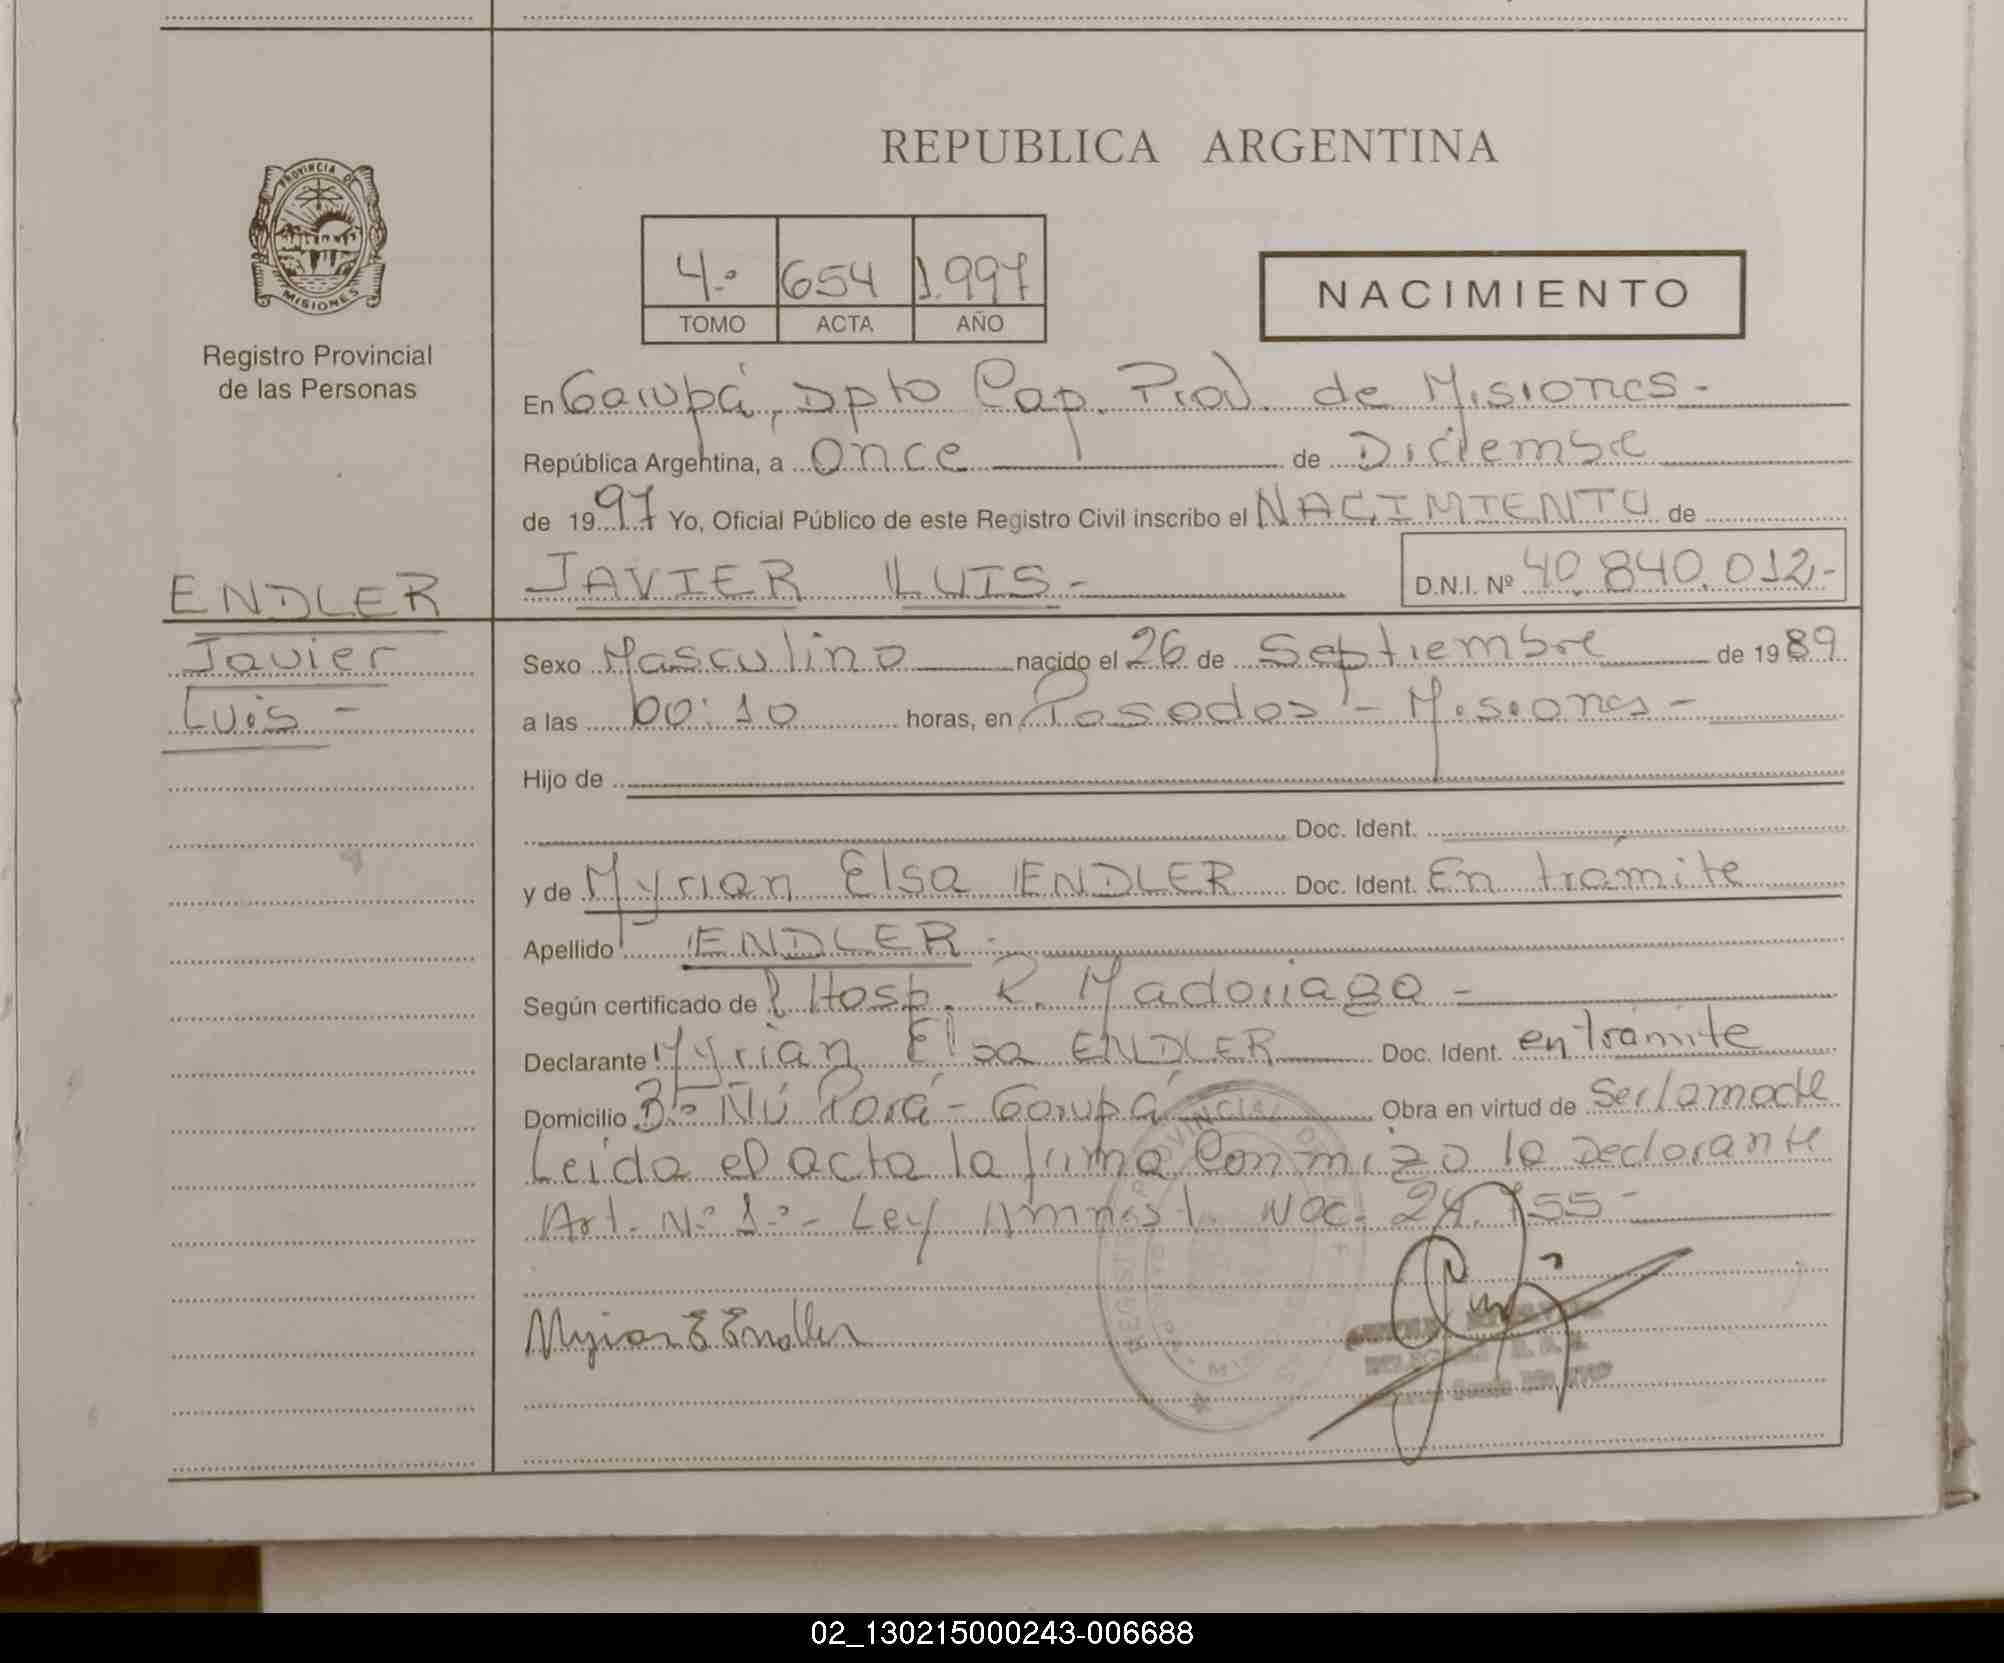 REPUBLICA ARGENTINA
PROVINCIA DE
MISIONES
Registro Provincial
de las Personas
4.º 654 1.997
TOMO ACTA AÑO
NACIMIENTO
En Garupá, Dpto Cap. Prov. de Misiones.-
República Argentina, a once de Diciembre
de 1997 Yo, Oficial Público de este Registro Civil inscribo el NACIMIENTO de
JAVIER LUIS.- D.N.I. Nº 40.840.012.-
ENDLER
Javier
Luis -
Sexo Masculino nacido el 26 de Septiembre de 1989
a las 00:10 horas, en Posadas - Misiones -
Hijo de
Doc. Ident.
y de Myrian Elsa ENDLER Doc. Ident. En trámite
Apellido ENDLER.-
Según certificado de Hosp. R. Madariaga -
Declarante Myrian Elsa ENDLER Doc. Ident. en trámite
Domicilio Bº Ñú Porá - Garupá Obra en virtud de ser la madre
Leida el acta la firma conmizo la Declarante
Art. Nº 1.º - Ley Amnist. Nac. 24.755 -
Myrian E Endler
02_130215000243-006688